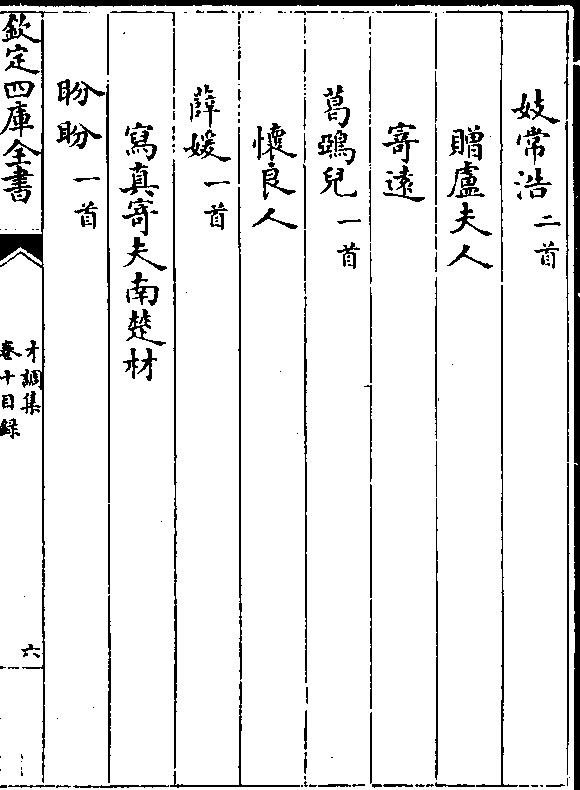 妓常浩二首
贈盧夫人
寄遠
葛鵶兒一首
懷良人
薛媛一首
寫真寄夫南楚材
盼盼一首
欽定四庫全書
才調集
卷十目録
六